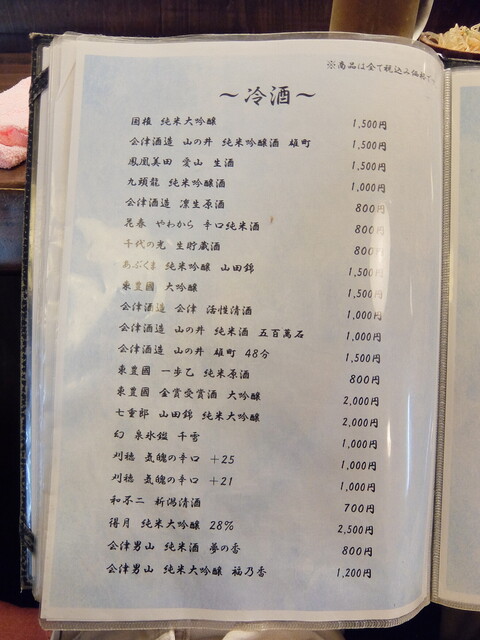 ※商品は全て税込み価格で
～冷酒～
国権 純米大吟醸 1,500円
会津酒造 山の井 純米吟醸酒 雄町 1,500円
鳳凰美田 愛山 生酒 1,500円
九頭龍 純米吟醸酒 1,000円
会津酒造 凛生原酒 800円
花春 やわから 辛口純米酒 800円
千代の光 生貯蔵酒 800円
あぶくま 純米吟醸 山田錦 1,500円
東豊國 大吟醸 1,500円
会津酒造 会津 活性清酒 1,000円
会津酒造 山の井 純米酒 五百萬石 1,000円
会津酒造 山の井 雄町 48分 1,500円
東豊國 一歩己 純米原酒 800円
東豊國 金賞受賞酒 大吟醸 2,000円
七重郎 山田錦 純米大吟醸 2,000円
幻 泉氷鑑 千雪 1,000円
刈穂 気魄の辛口 +25 1,000円
刈穂 気魄の辛口 +21 1,000円
和不二 新潟清酒 700円
得月 純米大吟醸 28% 2,500円
会津男山 純米酒 夢の香 800円
会津男山 純米大吟醸 福乃香 1,200円